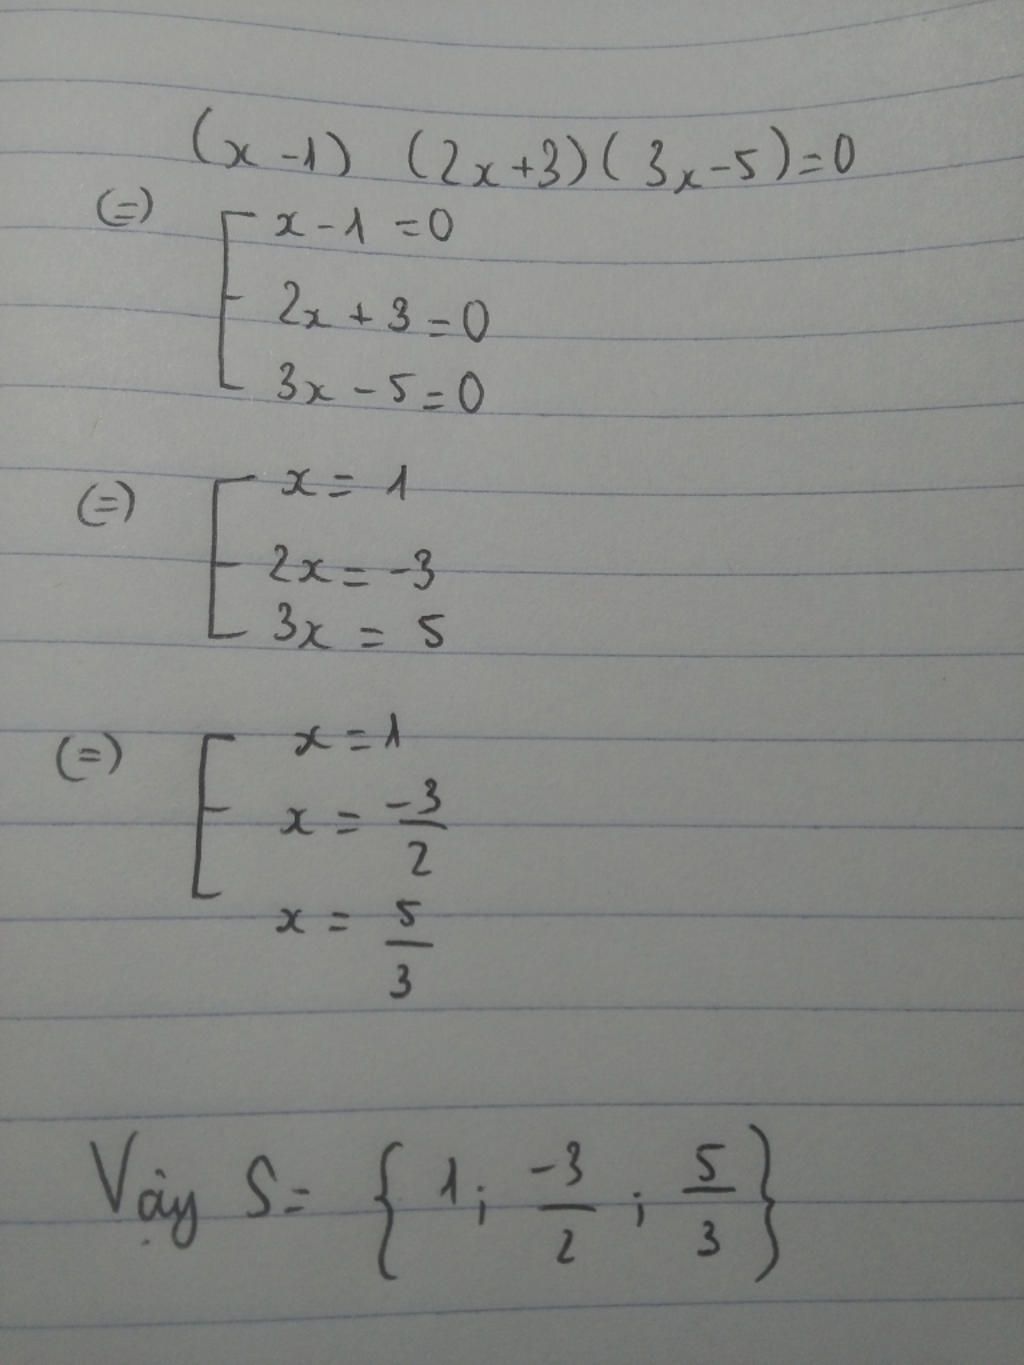 (x-1) (2x+3)(3x-5)=0
(=) [ x-1=0
2x+3=0
3x-5=0
(=) [ x=1
2x=-3
3x=5
(=) [ x=1
x=-3/2
x=5/3
Vậy S= {1; -3/2; 5/3}